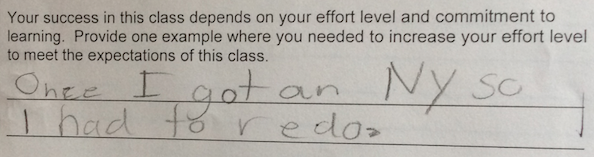 Your success in this class depends on your effort level and commitment to
learning. Provide one example where you needed to increase your effort level
to meet the expectations of this class.
Once I got an Ny so
I had to redo